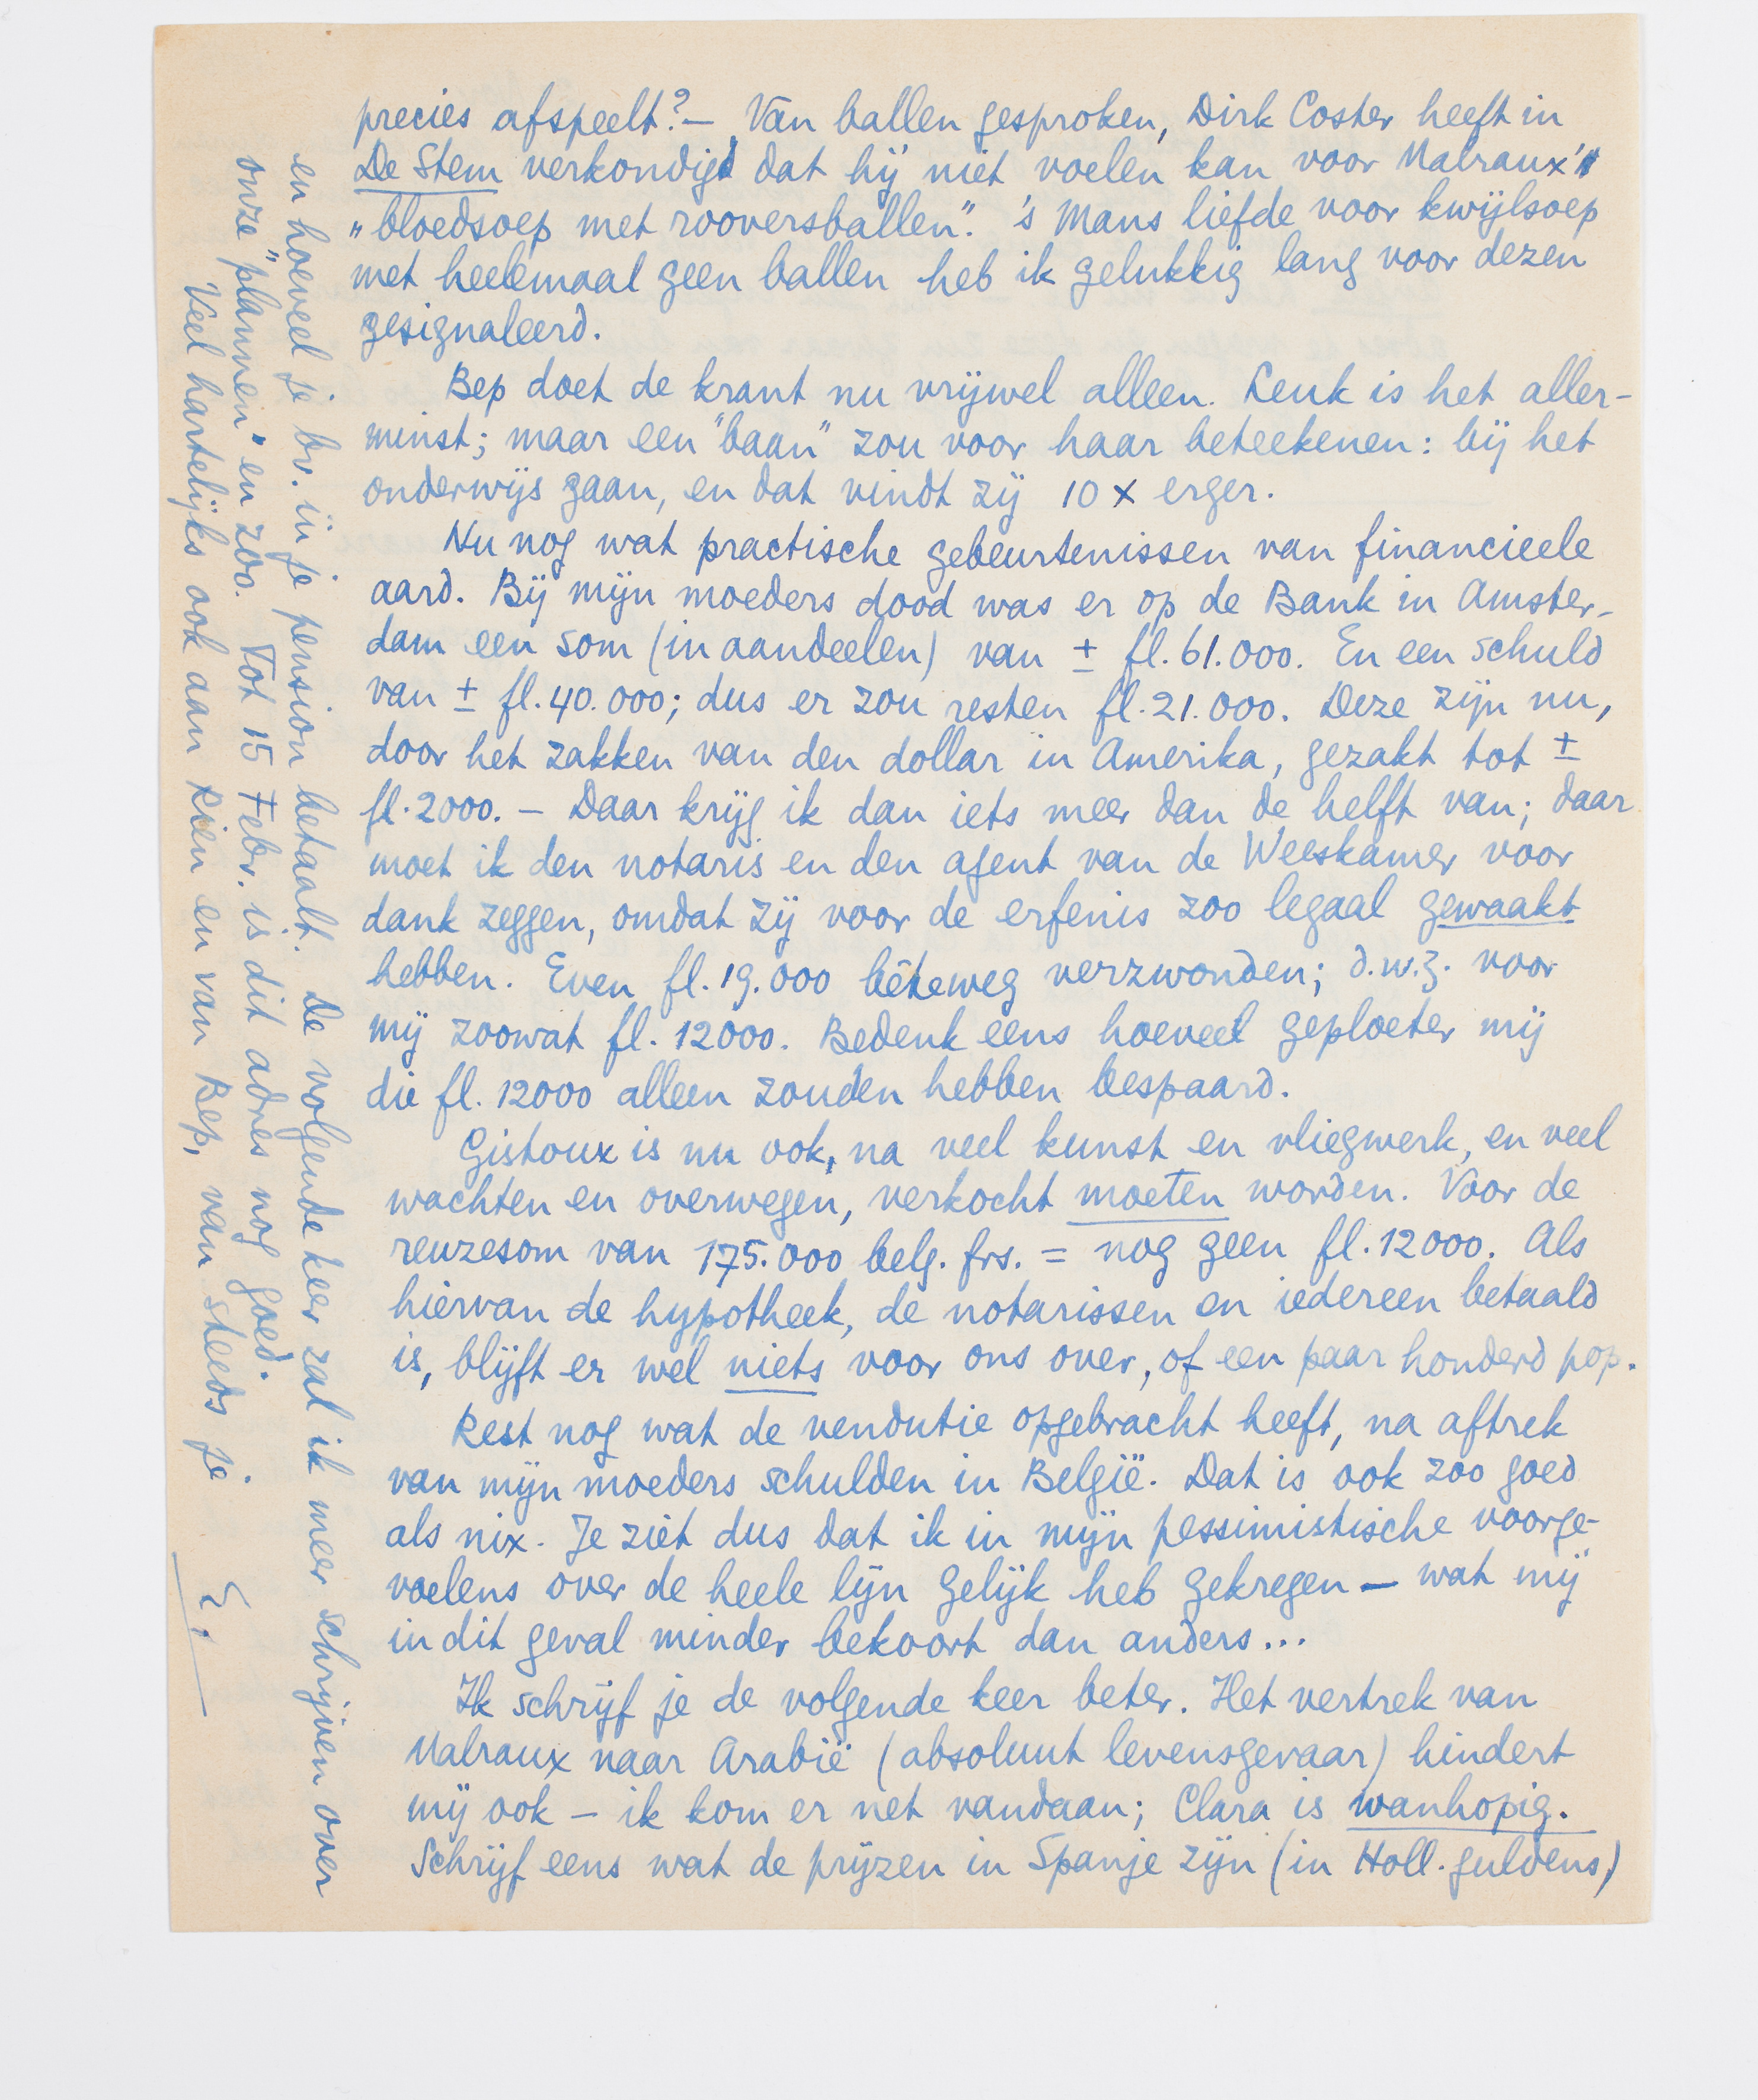 precies afspeelt? — Van ballen gesproken, Dirk Coster heeft in
De Stem verkondigd dat hij niet voelen kan voor Malraux's
„bloedsoep met rooversballen". 's Mans liefde voor kwijlsoep
met heelemaal geen ballen heb ik gelukkig lang voor dezen
gesignaleerd.
Bep doet de krant nu vrijwel alleen. Leuk is het aller-
minst; maar een "baan" zou voor haar beteekenen: bij het
onderwijs gaan, en dat vindt zij 10 x erger.
Nu nog wat practische gebeurtenissen van financieele
aard. Bij mijn moeders dood was er op de Bank in Amster-
dam een som (in aandeelen) van ± fl. 61.000. En een schuld
van ± fl. 40.000; dus er zou resten fl. 21.000. Deze zijn nu,
door het zakken van den dollar in Amerika, gezakt tot ±
fl. 2000. — Daar krijg ik dan iets meer dan de helft van; daar
moet ik den notaris en den agent van de Weeskamer voor
dank zeggen, omdat zij voor de erfenis zoo legaal gewaakt
hebben. Even fl. 19.000 bêteweg verzwonden; d.w.z. voor
mij zoowat fl. 12000. Bedenk eens hoeveel geploeter mij
die fl. 12000 alleen zouden hebben bespaard.
Gistoux is nu ook, na veel kunst en vliegwerk, en veel
wachten en overwegen, verkocht moeten worden. Voor de
reuzesom van 175.000 belg. frs. = nog geen fl. 12000. Als
hiervan de hypotheek, de notarissen en iedereen betaald
is, blijft er wel niets voor ons over, of een paar honderd pop.
Rest nog wat de vendutie opgebracht heeft, na aftrek
van mijn moeders schulden in België. Dat is ook zoo goed
als nix. Je ziet dus dat ik in mijn pessimistische voorge-
voelens over de heele lijn gelijk heb gekregen — wat mij
in dit geval minder bekoort dan anders...
Ik schrijf je de volgende keer beter. Het vertrek van
Malraux naar Arabië (absoluut levensgevaar) hindert
mij ook — ik kom er net vandaan; Clara is wanhopig.
Schrijf eens wat de prijzen in Spanje zijn (in Holl. guldens)
en hoeveel je bv. in je pension betaalt. De volgende keer zal ik meer schrijven over
onze "plannen" en zoo. Tot 15 Febr. is dit adres nog goed.
Veel hartelijks ook aan Rien en van Bep, van steeds je
E.